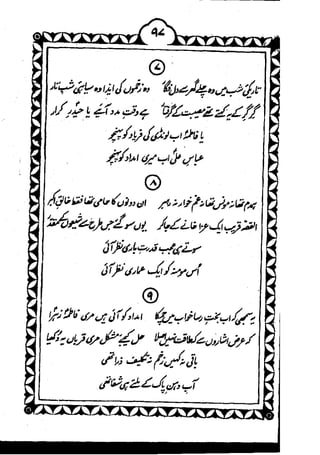 ۹۷
۷
تاریکئ شب میں وہ چلے گھر سے دل وہ زخموں کی ایذا وہ سیاہی شب تار
گر گر کے یہ کہتے تھے مصیبت کے گرفتار ہے وقت مدد آئیے یا حیدر کرار
یا فاطمہ اب لونڈی کی فریاد کو پہنچو
عباس علی اب میری امداد کو پہنچو
۸
ہمدم تھا نہ مونس تھا نہ غم خوار نہ رہبر ان دونوں کا حامی تھا فقط خالق اکبر
القصہ قریب ایک عزا خانے کے جا کر یوں سو گئے جس طرح سے شیعوں کا مقدر
سوتے ہی عجب قدرت باری نظر آئی
اس مومنہ کو ایک عماری نظر آئی
۹
یہ سمجھی کہ اب بخت رسا خواب میں چمکا امداد کو آئی ہیں مری فاطمہ زہرا
کہ عرض اشاروں سے کہ طاقت نہیں اصلا حل کیجیے مشکل مری قربان یہ دکھیا
باقی نہ کہیں زخم نہ تکلیف ذرا تھی
آب دہن پاک کے ملتے ہی شفا تھی